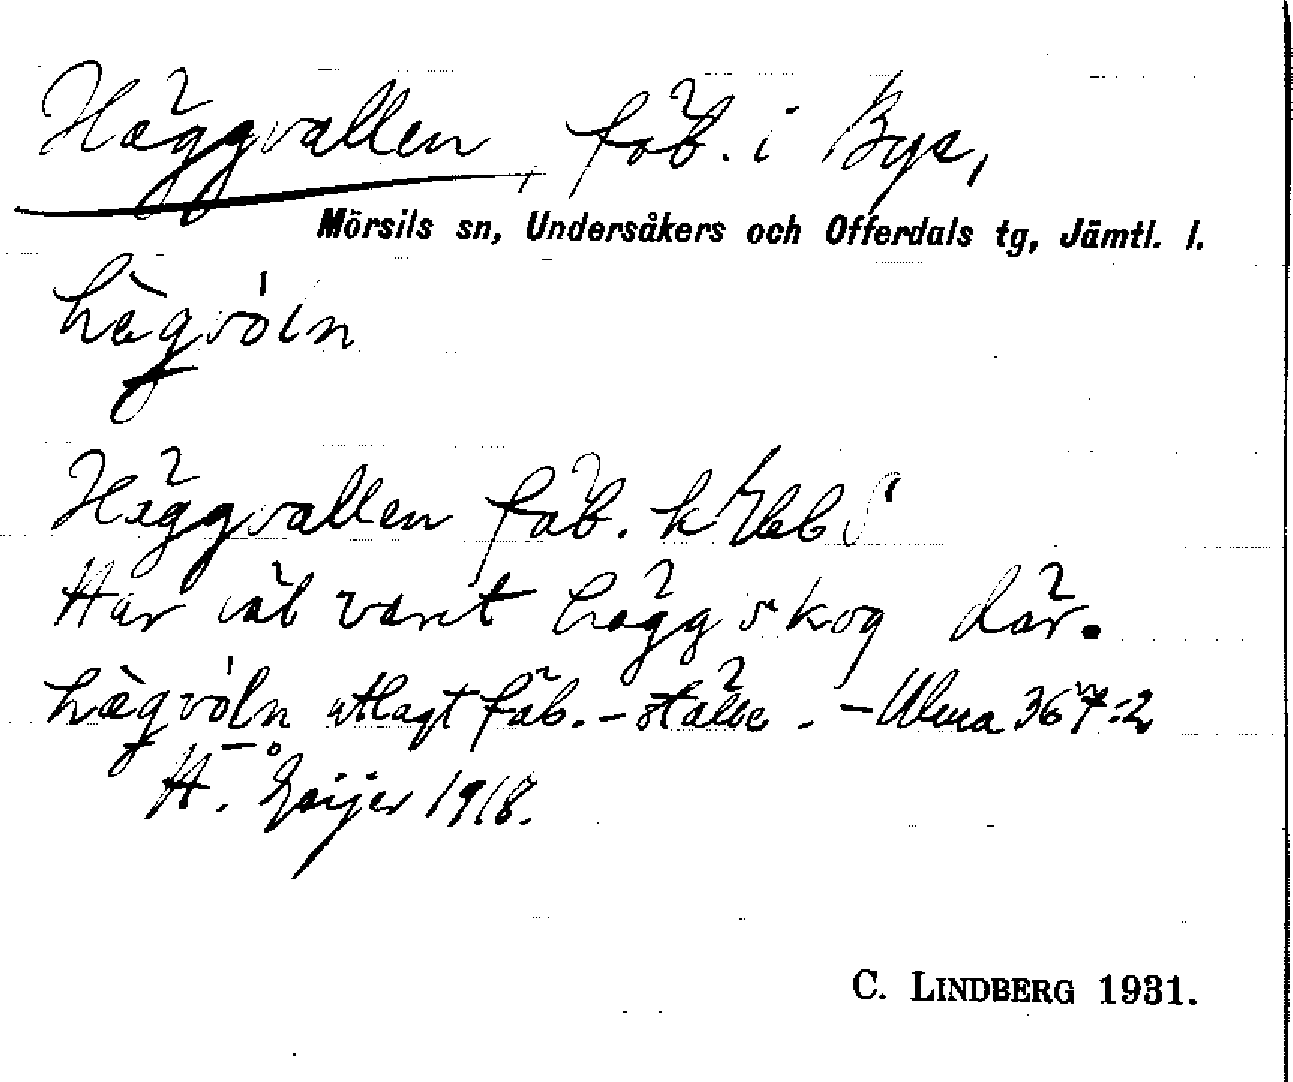 Häggvallen, fäb. i Bye,
Mörsils sn, Undersåkers och Offerdals tg, Jämtl. l.
hä̀gvóln
Häggvallen fäb.
Har väl varit häggskog där.
hä̀gvóln utlagt fäb.-ställe. - Ulma 367:2
H. Geijer 1918.
C. LINDBERG 1931.